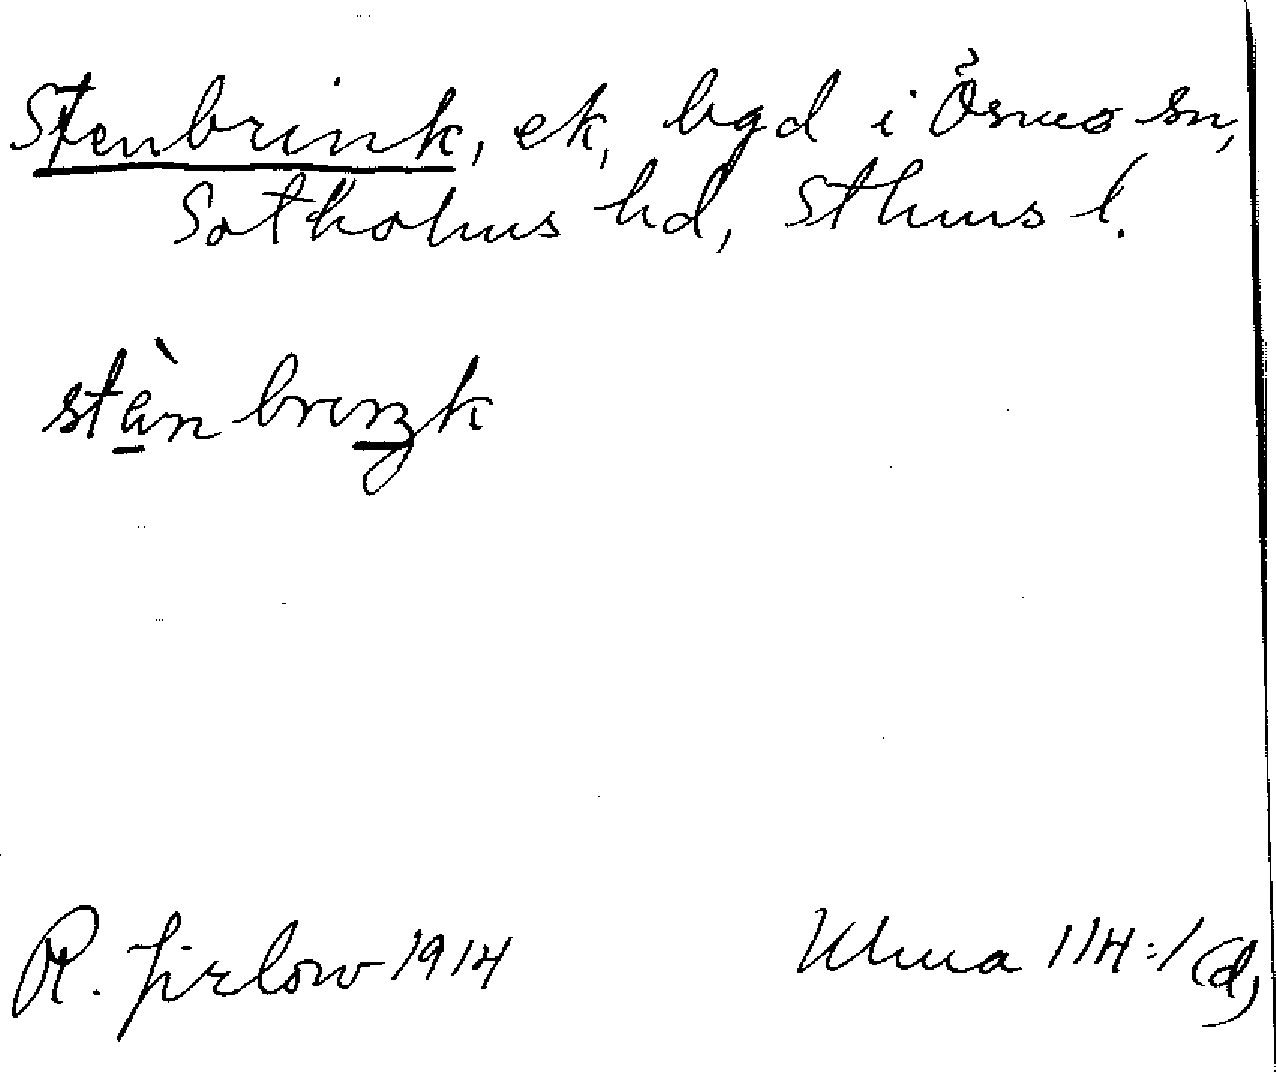 Stenbrink, ek, bgd i Ösmo sn,
Sotholms hd, Sthms l.
stàn breŋk
R. Jirlow 1914
Ulma 114:1 (d)